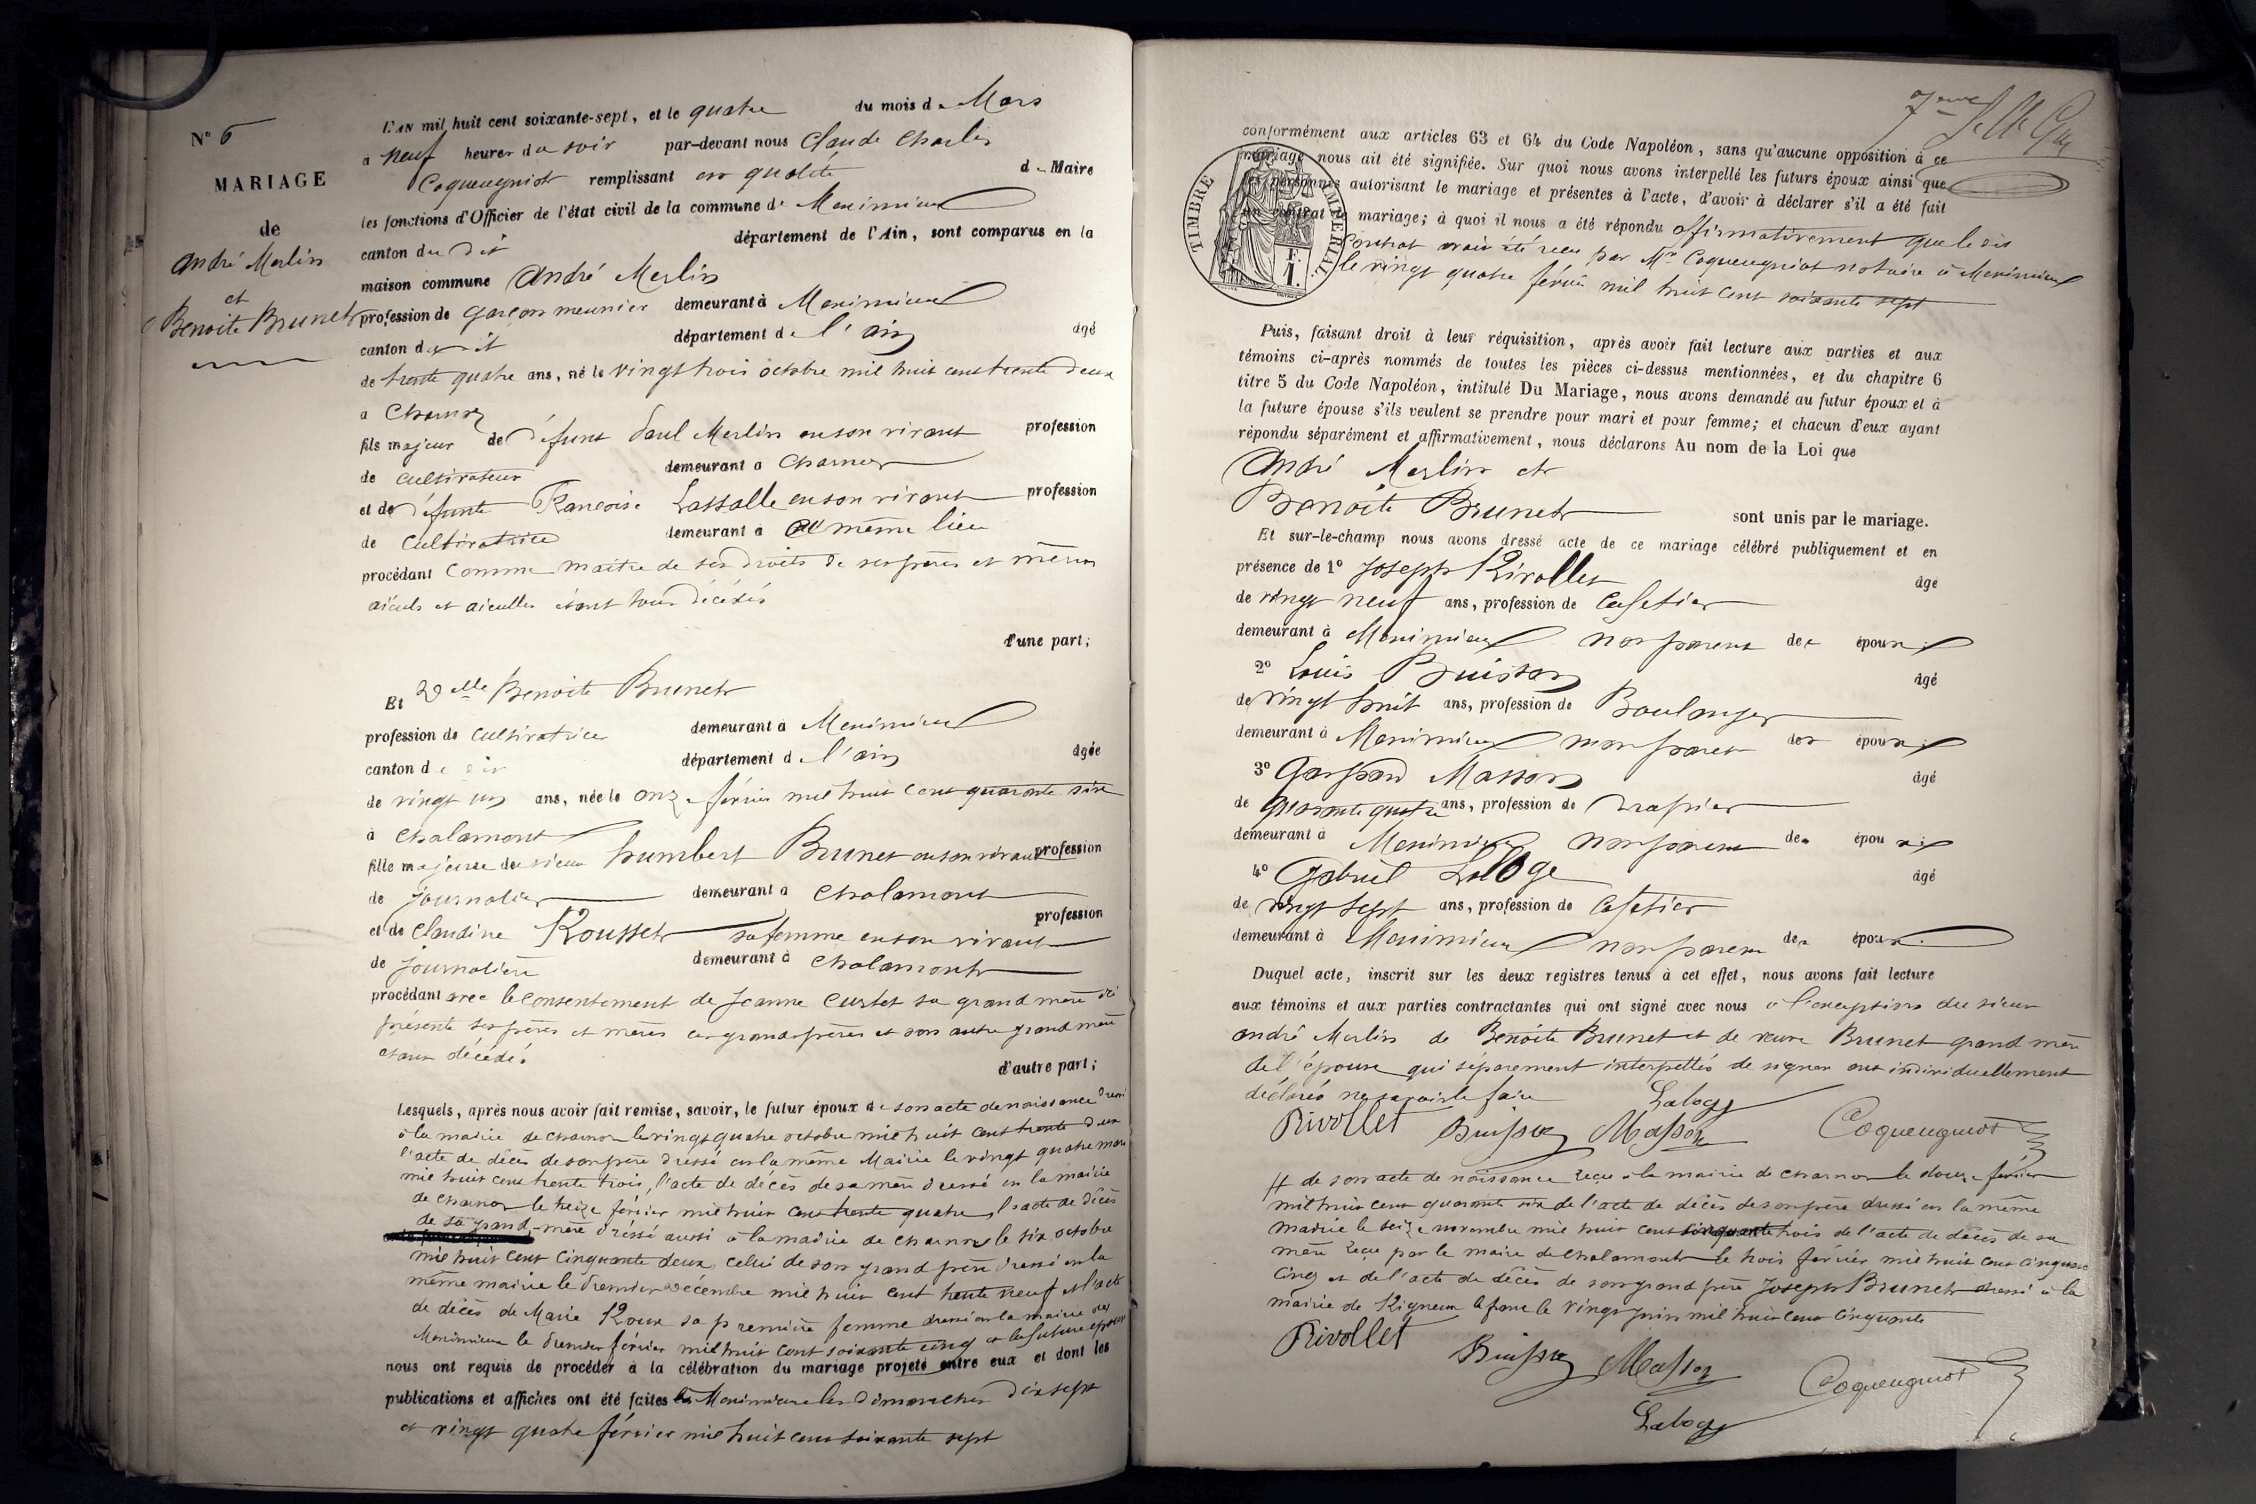 N° 6
MARIAGE
de
André Merlin
et
Benoite Brunet
L'AN mil huit cent soixante-sept, et le quatre du mois de Mars
à neuf heures du soir par-devant nous Claude Charles
Coqueugniot remplissant en qualité de Maire
les fonctions d'Officier de l'état civil de la commune de Meximieux
canton du dit département de l'Ain, sont comparus en la
maison commune André Merlin
profession de garçon meunier demeurant à Meximieux
canton du dit département de l'ain âgé
de trente quatre ans, né le vingt trois octobre mil huit cent trente deux
à Charnoz
fils majeur de défunt Paul Merlin en son vivant profession
de cultivateur demeurant à Charnoz
et de défunte Francoise Lassalle en son vivant profession
de cultivatrice demeurant à au même lieu
procédant comme maitre de ses droits ses pères et mères
aïeuls et aieulles étant tous décédés
d'une part;
Et Delle Benoite Brunet
profession de cultivatrice demeurant à Meximieux
canton du dit département de l'ain âgée
de vingt un ans, née le onze février mil huit cent quarante six
à Chalamont
fille majeure de sieur humbert Brunet en son vivant profession
de journalier demeurant à Chalamont
et de Claudine Rousset sa femme en son vivant profession
de journalière demeurant à Chalamont
procédant avec le consentement de Jeanne Curtet sa grand mère ici
présente ses pères et mères ces grands pères et son autre grand mère
étant décédés
d'autre part;
Lesquels, après nous avoir fait remise, savoir, le futur époux de son acte de naissance dressé
à la mairie de charnoz le vingt quatre octobre mil huit cent trente deux
l'acte de décès de son père dressé en la même Mairie le vingt quatre mars
mil huit cent trente trois, l'acte de décès de sa mère dressé en la mairie
de charnoz le treize février mil huit cent trente quatre, l'acte de décès
de sa grand-mère dréssé aussi à la mairie de charnoz le six octobre
mil huit cent cinquante deux, celui de son grand père dressé en la
même mairie le premier décembre mil huit cent trente neuf et l'acte
de décès de Marie Roux sa première femme dressé en la mairie de
Meximieux le premier février mil huit cent soixante cinq et la future épouse
nous ont requis de procéder à la célébration du mariage projeté entre eux et dont les
publications et affiches ont été faites à Meximieux les dimanches dix sept
et vingt quatre février mil huit cent soixante sept
7eme
conformément aux articles 63 et 64 du Code Napoléon, sans qu'aucune opposition à ce
mariage nous ait été signifiée. Sur quoi nous avons interpellé les futurs époux ainsi que
les personnes autorisant le mariage et présentes à l'acte, d'avoir à déclarer s'il a été fait
un contrat de mariage; à quoi il nous a été répondu affirmativement que le dit
Contrat avait été reçu par Me Coqueugniot notaire à Meximieux
le vingt quatre février mil huit cent soixante sept
TIMBRE IMPÉRIAL
1 F.
Puis, faisant droit à leur réquisition, après avoir fait lecture aux parties et aux
témoins ci-après nommés de toutes les pièces ci-dessus mentionnées, et du chapitre 6
titre 5 du Code Napoléon, intitulé Du Mariage, nous avons demandé au futur époux et à
la future épouse s'ils veulent se prendre pour mari et pour femme; et chacun d'eux ayant
répondu séparément et affirmativement, nous déclarons Au nom de la Loi que
André Merlin et
Benoite Brunet sont unis par le mariage.
Et sur-le-champ nous avons dressé acte de ce mariage célébré publiquement et en
présence de 1° Joseph Rivollet âgé
de vingt neuf ans, profession de Cafetier
demeurant à Meximieux non parent des époux
2° Louis Buisson âgé
de vingt huit ans, profession de Boulanger
demeurant à Meximieux non parent des époux
3° Gaspard Masson âgé
de quarante quatre ans, profession de drapier
demeurant à Meximieux non parent des époux
4° Gabriel Laloge âgé
de vingt sept ans, profession de Cafetier
demeurant à Meximieux non parent des époux
Duquel acte, inscrit sur les deux registres tenus à cet effet, nous avons fait lecture
aux témoins et aux parties contractantes qui ont signé avec nous à l'exception du sieur
andré Merlin de Benoite Brunet et de veuve Brunet grand mère
de l'épouse qui séparement interpellés de signer ont individuellement
déclarés ne savoir le faire
Rivollet Buisson Masson Laloge Coqueugniot
# de son acte de naissance reçu à la mairie de charnoz le douze février
mil huit cent quarante six de l'acte de décès de son père dressé en la même
mairie le seize novembre mil huit cent cinquante trois de l'acte de décès de sa
mère reçu par le maire de Chalamont le trois février mil huit cent cinquante
cinq et de l'acte de décès de son grand père Joseph Brunet dressé à la
mairie de Rigneux le franc le vingt juin mil huit cent cinquante
Rivollet Buisson Masson Coqueugniot
Laloge